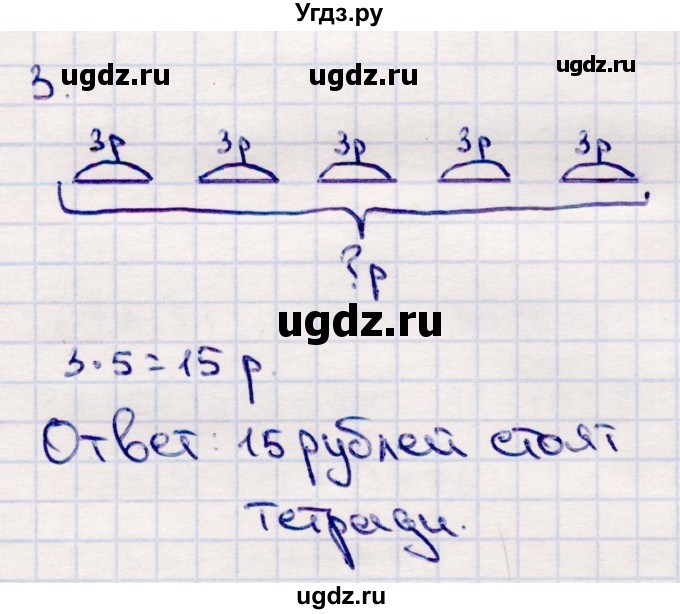 Угдз.ру
ugdz.ru ugdz.ru ugdz.ru
3.
3р 3р 3р 3р 3р
?р
ugdz.ru
3·5=15 р.
Ответ: 15 рублей стоят
тетради.
ugdz.ru